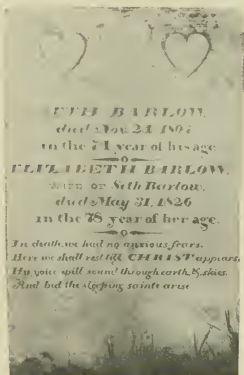 ETH BARLOW.
died Nov. 24 1807
in the 74 year of his age
ELIZABETH BARLOW,
wife of Seth Barlow,
died May 31, 1826
in the 78 year of her age.
In death, we had no anxious fears.
Here we shall rest till CHRIST appears,
His voice will sound through earth, & skies,
And bid the sleeping saints arise